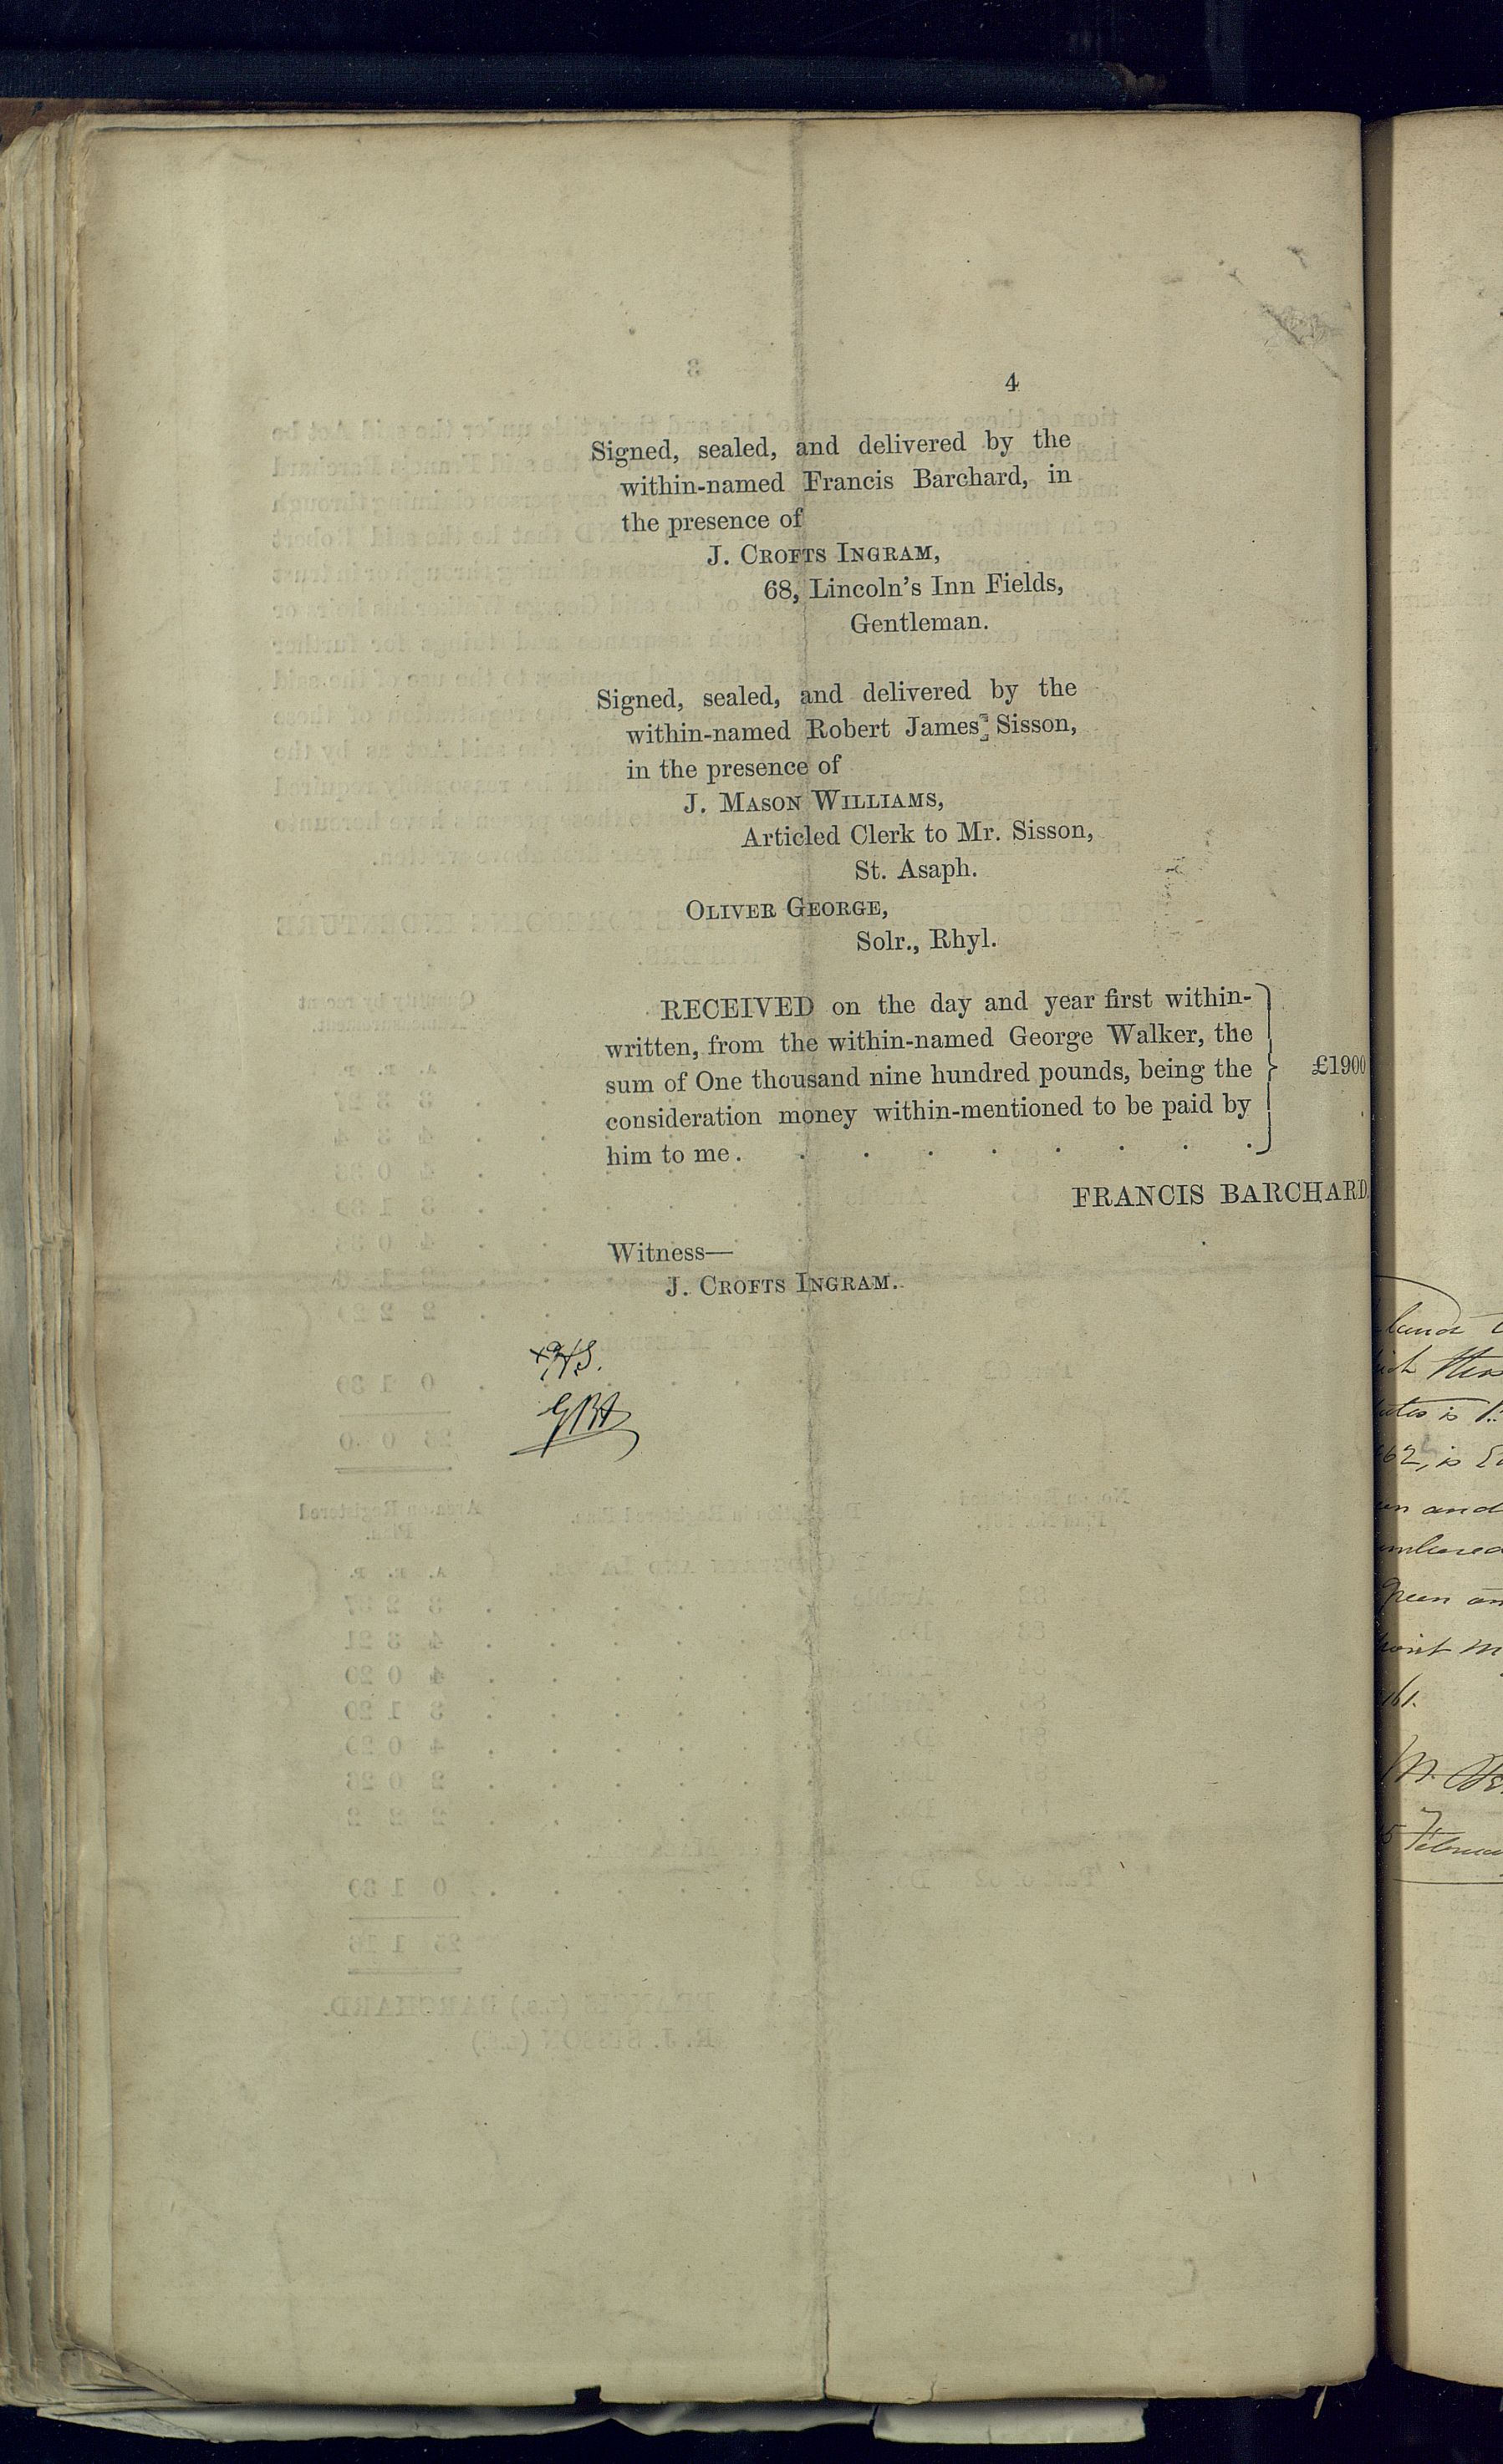 4
Signed, sealed, and delivered by the
within-named Francis Barchard, in
the presence of
J. CROFTS INGRAM,
68, Lincoln's Inn Fields,
Gentleman.
Signed, sealed, and delivered by the
within-named Robert James Sisson,
in the presence of
J. MASON WILLIAMS,
Articled Clerk to Mr. Sisson,
St. Asaph.
OLIVER GEORGE,
Solr., Rhyl.
RECEIVED on the day and year first within-
written, from the within-named George Walker, the
sum of One thousand nine hundred pounds, being the
consideration money within-mentioned to be paid by
him to me . . . . . . . . .
£1900
FRANCIS BARCHARD.
Witness—
J. CROFTS INGRAM.